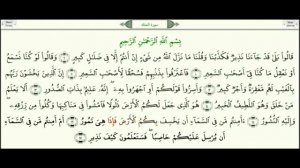 سورة الملك
بِسْمِ اللَّهِ الرَّحْمَٰنِ الرَّحِيمِ
قَالُوا بَلَىٰ قَدْ جَاءَنَا نَذِيرٌ فَكَذَّبْنَا وَقُلْنَا مَا نَزَّلَ اللَّهُ مِن شَيْءٍ إِنْ أَنتُمْ إِلَّا فِي ضَلَالٍ كَبِيرٍ وَقَالُوا لَوْ كُنَّا نَسْمَعُ
أَوْ نَعْقِلُ مَا كُنَّا فِي أَصْحَابِ السَّعِيرِ فَاعْتَرَفُوا بِذَنبِهِمْ فَسُحْقًا لِّأَصْحَابِ السَّعِيرِ إِنَّ الَّذِينَ يَخْشَوْنَ رَبَّهُم
بِالْغَيْبِ لَهُم مَّغْفِرَةٌ وَأَجْرٌ كَبِيرٌ وَأَسِرُّوا قَوْلَكُمْ أَوِ اجْهَرُوا بِهِ إِنَّهُ عَلِيمٌ بِذَاتِ الصُّدُورِ أَلَا يَعْلَمُ
مَنْ خَلَقَ وَهُوَ اللَّطِيفُ الْخَبِيرُ هُوَ الَّذِي جَعَلَ لَكُمُ الْأَرْضَ ذَلُولًا فَامْشُوا فِي مَنَاكِبِهَا وَكُلُوا مِن رِّزْقِهِ
وَإِلَيْهِ النُّشُورُ أَأَمِنتُم مَّن فِي السَّمَاءِ أَن يَخْسِفَ بِكُمُ الْأَرْضَ فَإِذَا هِيَ تَمُورُ أَمْ أَمِنتُم مَّن فِي السَّمَاءِ
أَن يُرْسِلَ عَلَيْكُمْ حَاصِبًا فَسَتَعْلَمُونَ كَيْفَ نَذِيرِ